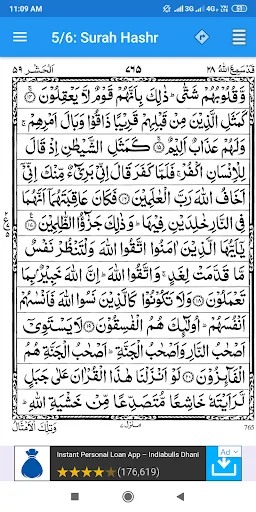 11:09 AM
5/6: Surah Hashr
قدسمع الله ٢٨
الحشر ٥٩
وَّقُلُوْبُهُمْ شَتّٰى ؕ ذٰلِكَ بِاَنَّهُمْ قَوْمٌ لَّا يَعْقِلُوْنَ ﴿١٤﴾
كَمَثَلِ الَّذِيْنَ مِنْ قَبْلِهِمْ قَرِيْبًا ذَاقُوْا وَبَالَ اَمْرِهِمْ ۚ
وَلَهُمْ عَذَابٌ اَلِيْمٌ ﴿١٥﴾ كَمَثَلِ الشَّيْطٰنِ اِذْ قَالَ
لِلْاِنْسَانِ اكْفُرْ ۚ فَلَمَّا كَفَرَ قَالَ اِنِّىْ بَرِىْٓءٌ مِّنْكَ اِنِّىْٓ
اَخَافُ اللّٰهَ رَبَّ الْعٰلَمِيْنَ ﴿١٦﴾ فَكَانَ عَاقِبَتَهُمَآ اَنَّهُمَا
فِى النَّارِ خَالِدَيْنِ فِيْهَا ؕ وَذٰلِكَ جَزٰٓؤُا الظّٰلِمِيْنَ ﴿١٧﴾
يٰٓاَيُّهَا الَّذِيْنَ اٰمَنُوا اتَّقُوا اللّٰهَ وَلْتَنْظُرْ نَفْسٌ
مَّا قَدَّمَتْ لِغَدٍ ۚ وَاتَّقُوا اللّٰهَ ؕ اِنَّ اللّٰهَ خَبِيْرٌۢ بِمَا
تَعْمَلُوْنَ ﴿١٨﴾ وَلَا تَكُوْنُوْا كَالَّذِيْنَ نَسُوا اللّٰهَ فَاَنْسٰىهُمْ
اَنْفُسَهُمْ ؕ اُولٰٓئِكَ هُمُ الْفٰسِقُوْنَ ﴿١٩﴾ لَا يَسْتَوِىْٓ
اَصْحٰبُ النَّارِ وَاَصْحٰبُ الْجَنَّةِ ؕ اَصْحٰبُ الْجَنَّةِ هُمُ
الْفَآئِزُوْنَ ﴿٢٠﴾ لَوْ اَنْزَلْنَا هٰذَا الْقُرْاٰنَ عَلٰى جَبَلٍ
لَّرَاَيْتَهٗ خَاشِعًا مُّتَصَدِّعًا مِّنْ خَشْيَةِ اللّٰهِ ؕ
وَتِلْكَ الْاَمْثَالُ
منزل ٧
765
Instant Personal Loan App – Indiabulls Dhani
(176,619)
Ad